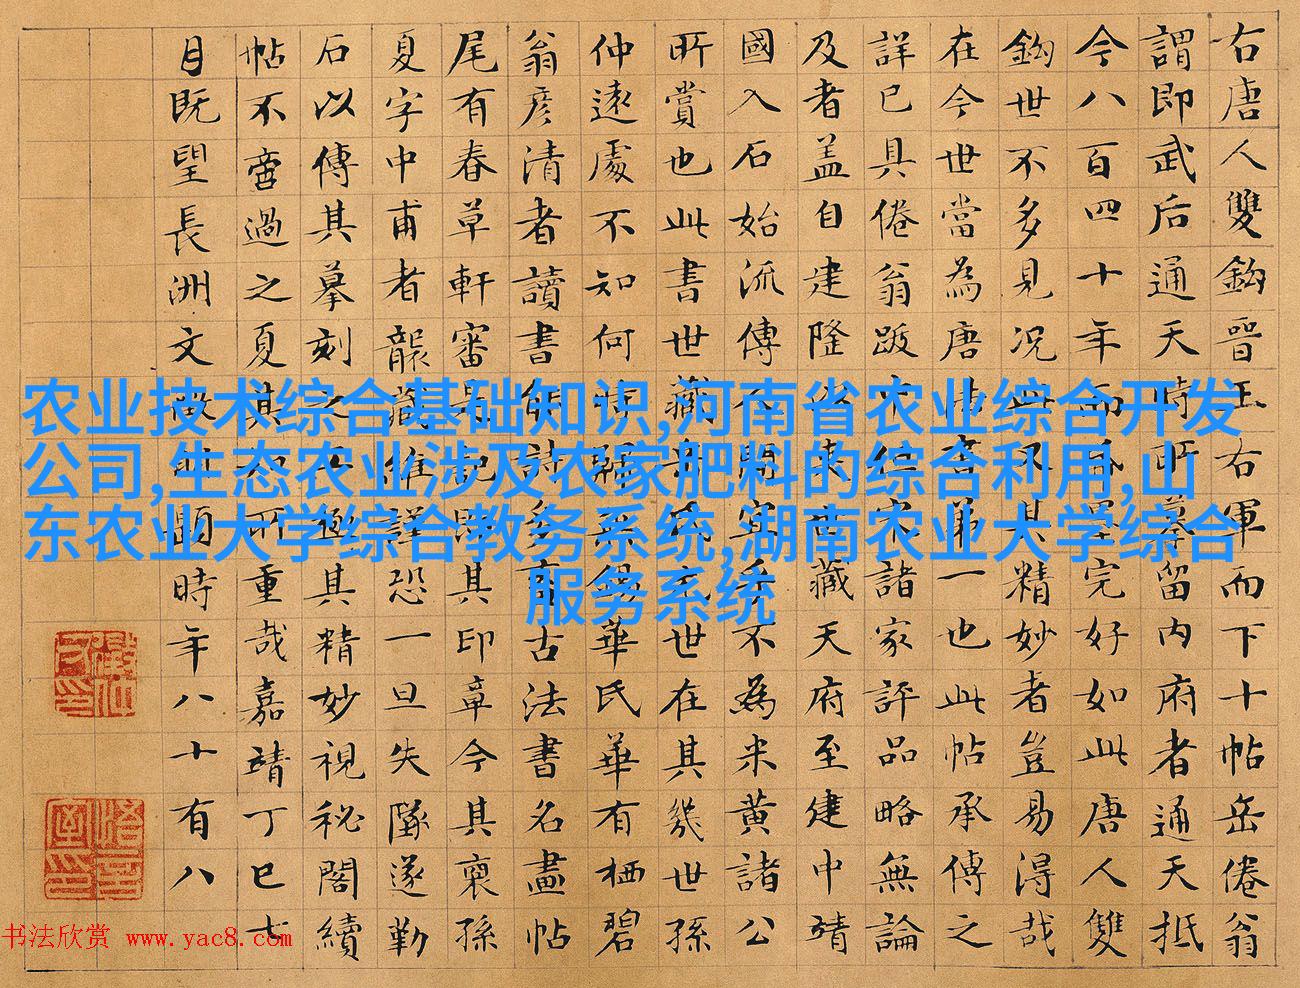 右唐人雙鈎晉王右軍而下十帖岳倦翁
謂即武后通天時所摹留內府者通天抵
今八百四十年而紙墨完好如此唐人雙
鈎世不多見況此又其精妙者豈易得哉
在今世當為唐法書第一也此帖承傳之
詳已具倦翁跋中但宋諸家評品略無論
及者盖自建隆以來世藏天府至建中靖
國入石始流傳人間宜乎不為米黃諸公
所賞也此書世藏岳氏元世在其幾世孫
仲遠處不知何時歸無錫華氏華有栖碧
翁彥清者讀書能詩多畜古法書名畫帖
尾有春草軒審定記即其印章今其裔孫
夏字中甫者襲藏維謹恐一旦失墜遂勒
石以傳其摹刻之工極其精妙視秘閣續
帖不啻過之夏其知所重哉嘉靖丁巳七
月既望長洲文徵明題時年八十有八
农业技术综合基础知识,河南省农业综合开发
公司,生态农业涉及农家肥料的综合利用,山
东农业大学综合教务系统,湖南农业大学综合
服务系统
书法欣赏 www.yac8.com